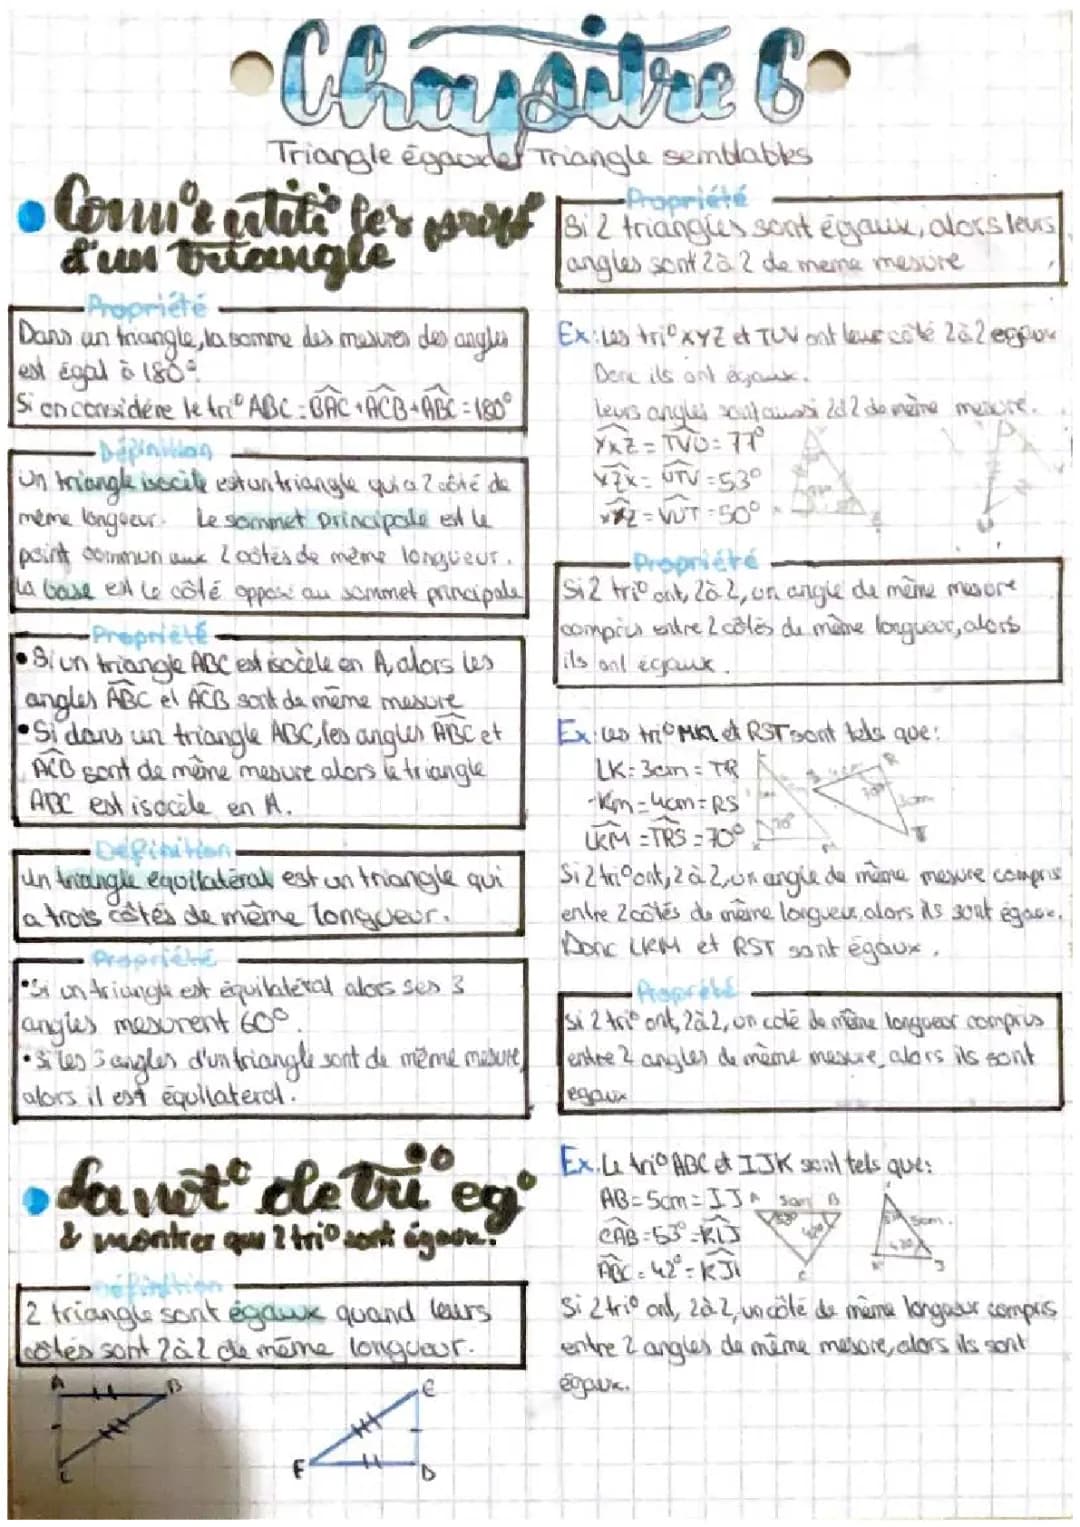 Chapitre 6
Triangle égaux et Triangle semblables
Conn° & utili° les prop°
d'un triangle
Propriété
Dans un triangle, la somme des mesures des angles
est égal à 180°
Si on considère le tri° ABC : BAC + ACB + ABC = 180°
Définition
Un triangle isocile est un triangle qui a 2 côté de
même longueur. Le sommet principale est le
point commun aux 2 cotés de même longueur.
La base est le côté opposé au sommet principale
Propriété
• Si un triangle ABC est isocèle en A, alors les
angles ABC et ACB sont de même mesure
• Si dans un triangle ABC, les angles ABC et
ACB sont de même mesure alors le triangle
ABC est isocèle en A.
Définition
Un triangle équilatéral est un triangle qui
a trois côtés de même longueur.
Propriété
• Si un triangle est équilatéral alors ses 3
angles mesurent 60°.
• Si les 3 angles d'un triangle sont de même mesure,
alors il est équilateral.
La not° de tri° eg°
& montrer que 2 tri° sont égaux.
Définition
2 triangle sont égaux quand leurs
côtés sont 2 à 2 de même longueur.
A B C
E F D
Propriété
Si 2 triangles sont égaux, alors leurs
angles sont 2 à 2 de meme mesure
Ex : Les tri° XYZ et TUV ont leur côté 2 à 2 égaux
Donc ils ont égaux.
leurs angles sont aussi 2 à 2 de même mesure.
YXZ = TVU = 77°
YZX = UTV = 53°
XYZ = VUT = 50°
Propriété
Si 2 tri° ont, 2 à 2, un angle de même mesure
compris entre 2 côtés de même longueur, alors
ils ont égaux.
Ex : Les tri° MKL et RST sont tels que :
LK = 3cm = TR
KM = 4cm = RS
LKM = TRS = 70°
70° 70° 3cm
Si 2 tri° ont, 2 à 2, un angle de même mesure compris
entre 2 côtés de même longueur, alors ils sont égaux.
Donc LKM et RST sont égaux.
Propriété
Si 2 tri° ont, 2 à 2, un coté de même longueur compris
entre 2 angles de même mesure, alors ils sont
égaux
Ex : Le tri° ABC et IJK sont tels que :
AB = 5cm = IJ
CAB = 53° = KIJ
ABC = 42° = KJI
A 5cm B 53° 42° C
5cm. 42° J
Si 2 tri° ont, 2 à 2, un côté de même longueur compris
entre 2 angles de même mesure, alors ils sont
égaux.